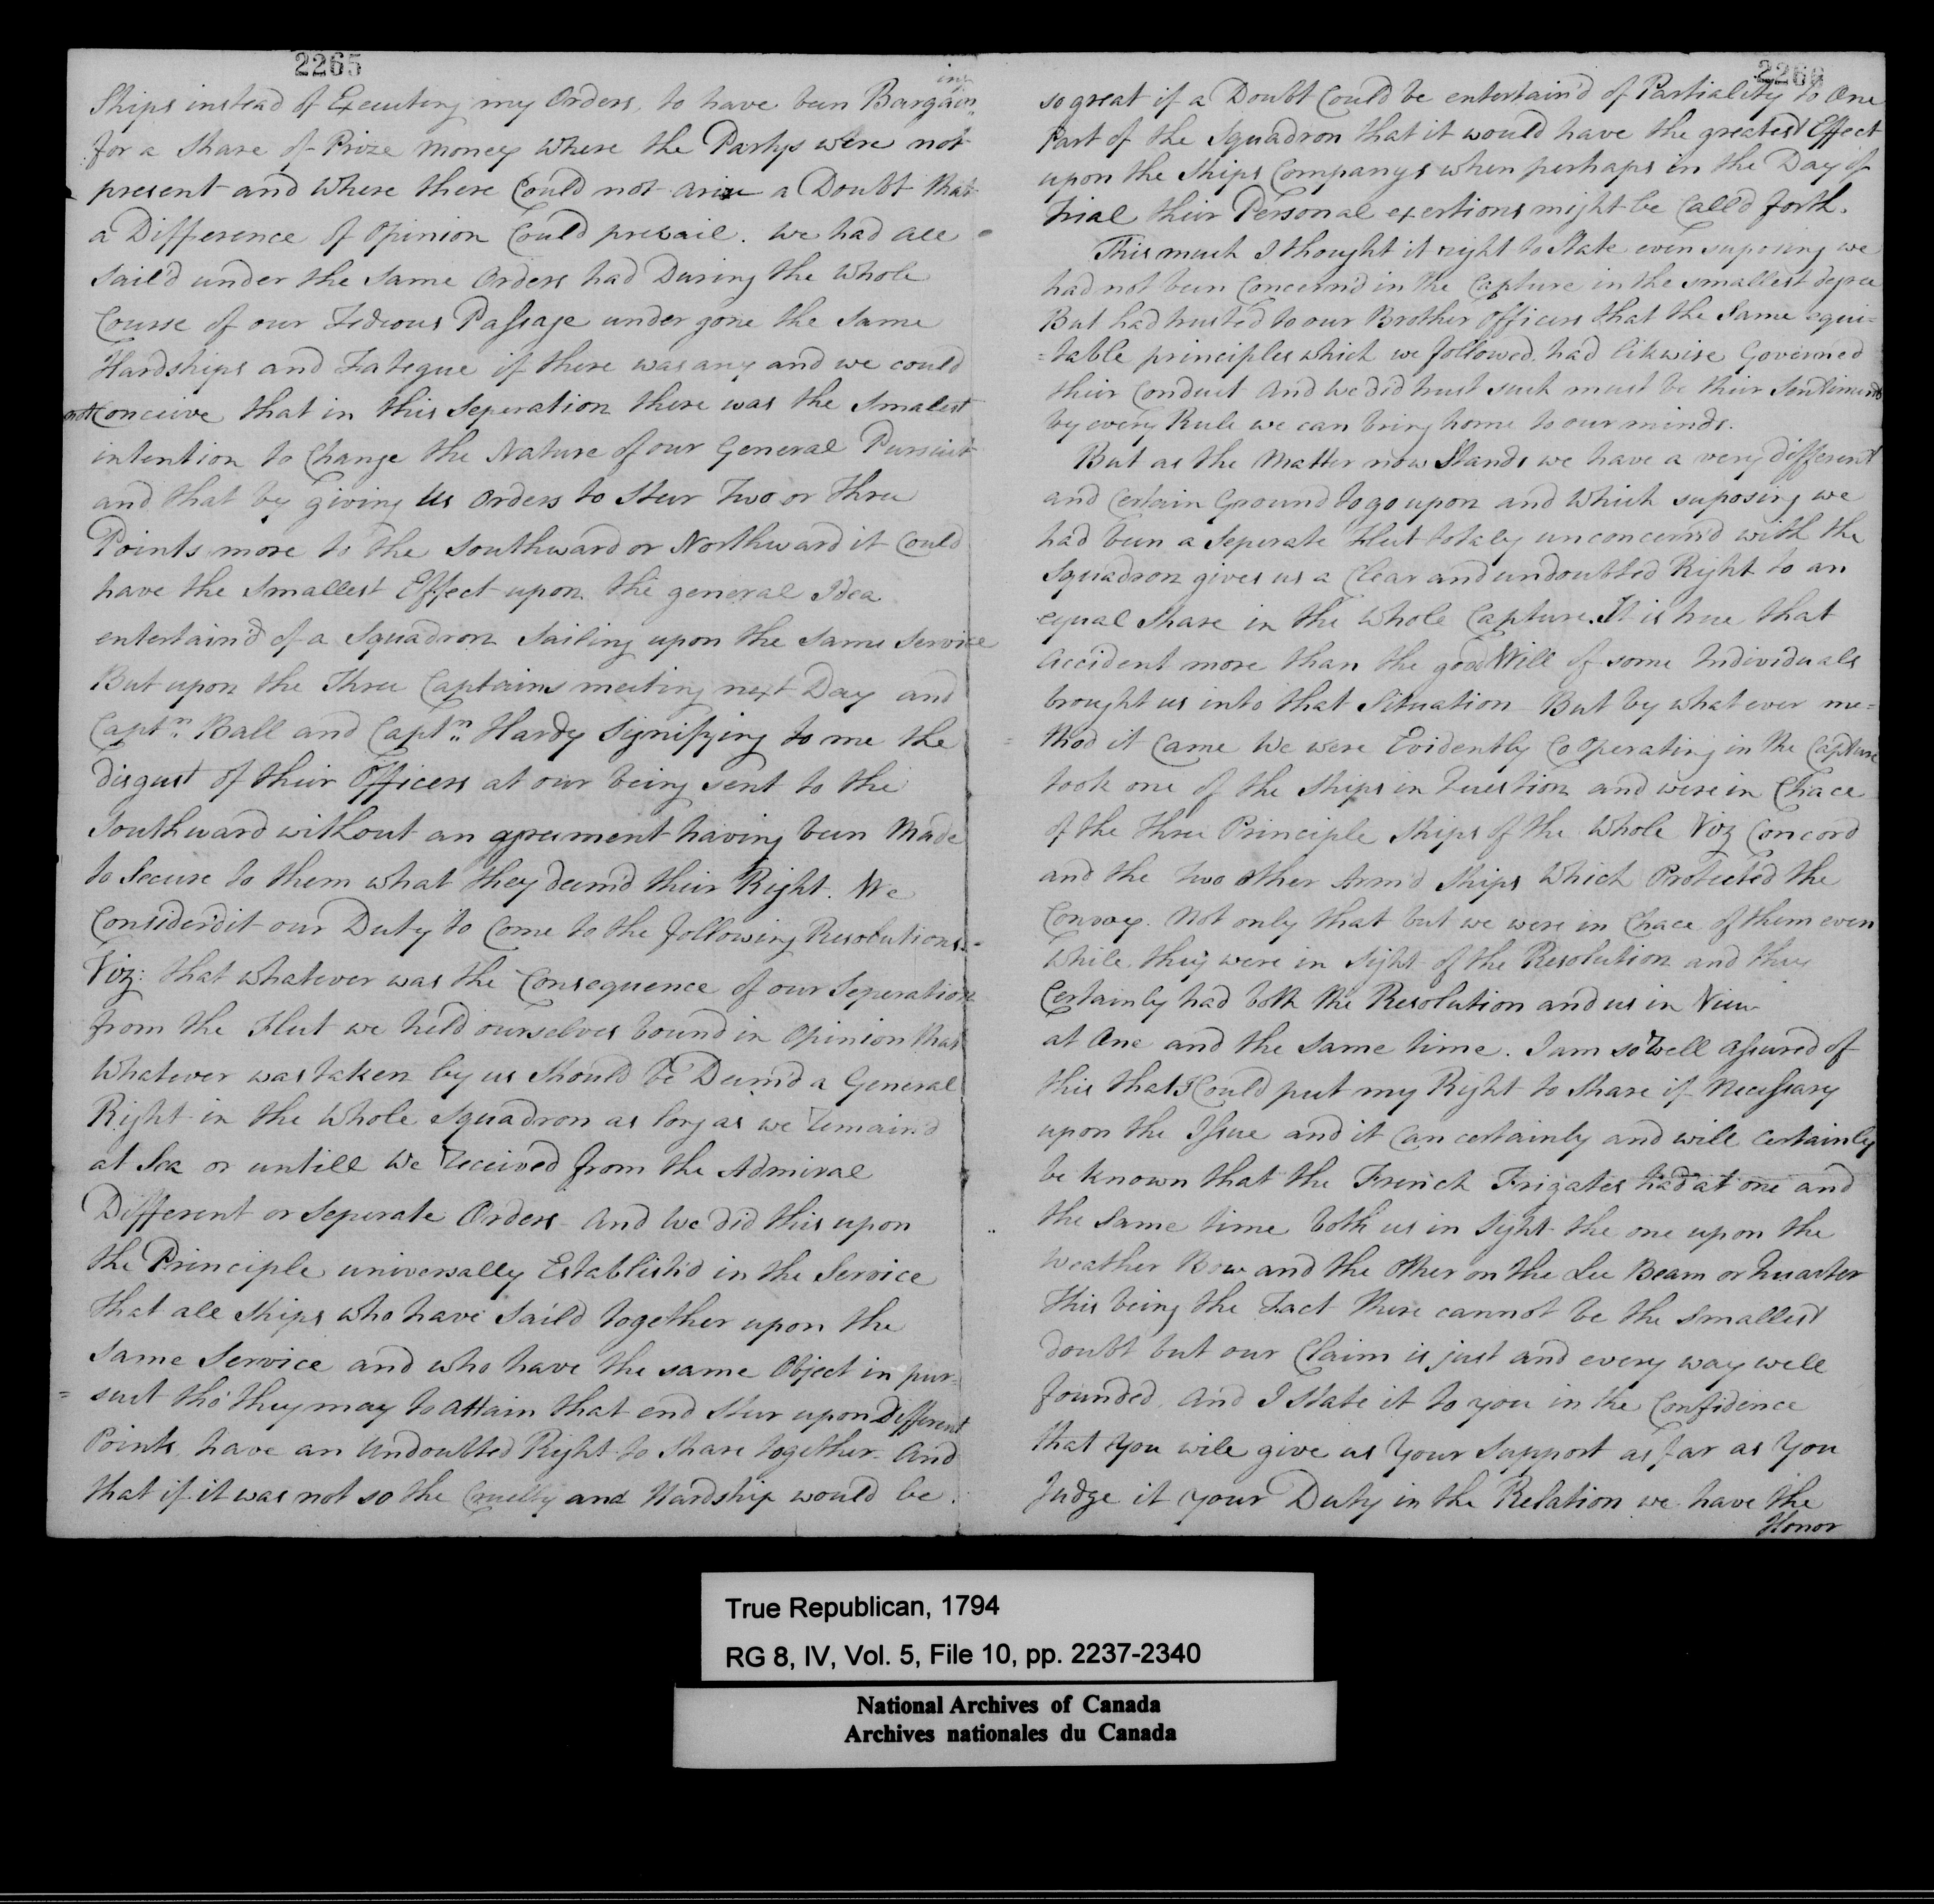 2265
Ships instead of Executing my Orders, to have been Bargain
ing
for a Share of Prize Money where the Partys were not
present and where there Could not arise a Doubt that
a Difference of Opinion Could prevail. We had all
Sail'd under the Same Orders had During the Whole
Course of our Tedious Passage under gone the Same
Hardships and Fategue if there was any and we could
not Conceive that in this Seperation there was the Smalest
intention to Change the Nature of our General Pursuit
and that by giving Us Orders to Steer Two or Three
Points more to the Southward or Northward it Could
have the Smallest Effect upon the general Idea
entertain'd of a Squadron Sailing upon the Same Service
But upon the Three Captains meeting next Day and
Captn. Ball and Captn. Hardy Signifying to me the
disgust of their Officers at our being sent to the
Southward without an agreement having been Made
to Secure to them what they deem'd their Right. We
Consider'd it our Duty to Come to the following Resolutions.
Viz: that whatever was the Consequence of our Seperation
from the Fleet we held ourselves bound in Opinion that
Whatever was taken by us Should be Deem'd a General
Right in the Whole Squadron as long as we remain'd
at Sea or untill We received from the Admiral
Different or Seperate Orders - And We did this upon
the Principle universally Establish'd in the Service
that all Ships who have Sail'd together upon the
Same Service and who have the same Object in pur=
=suit tho' they may to attain that end Steer upon Different
Points, have an Undoubted Right to Share together - And
that if it was not so the Cruelty and Hardship would be
2266
so great if a Doubt Could be entertain'd of Partiality to One
Part of the Squadron that it would have the greatest Effect
upon the Ships Companys when perhaps in the Day of
Trial their Personal exertions might be Call'd forth.
This much I thought it right to State even suposing we
had not been Concern'd in the Capture in the smallest degree
But had trusted to our Brother Officers that the Same equi=
=table principles which we followed had likwise Governed
their Conduct And We did trust such must be their Sentiments
by every Rule we can bring home to our minds.
But as the Matter now Stands we have a very different
and Certain Ground to go upon and Which suposing we
had been a Seperate Fleet totaly unconcern'd with the
Squadron gives us a Clear and undoubted Right to an
equal Share in the Whole Capture. It is true that
Accident more than the good Will of some Individuals
brought us into that Situation - But by what ever me=
=thod it Came We were Evidently Co Operating in the Capture
took one of the Ships in Question and were in Chace
of the Three Principle Ships of the Whole Viz Concord
and the Two Other Arm'd Ships Which Protected the
Convoy. Not only that but we were in Chace of them even
While they were in Sight of the Resolution and they
Certainly had both the Resolution and us in View
at One and the Same time. I am so Well assured of
this that I Could put my Right to Share if Necessary
upon the Issue and it Can certainly and will certainly
be known that the French Frigates had at one and
the Same time both us in Sight the one upon the
Weather Bow and the Other on the Lee Beam or Quarter
This being the Fact there cannot be the Smallest
doubt but our Claim is just and every way well
founded, And I State it to you in the Confidence
that You will give us Your Support as far as You
Judge it your Duty in the Relation we have the
Honor
True Republican, 1794
RG 8, IV, Vol. 5, File 10, pp. 2237-2340
National Archives of Canada
Archives nationales du Canada